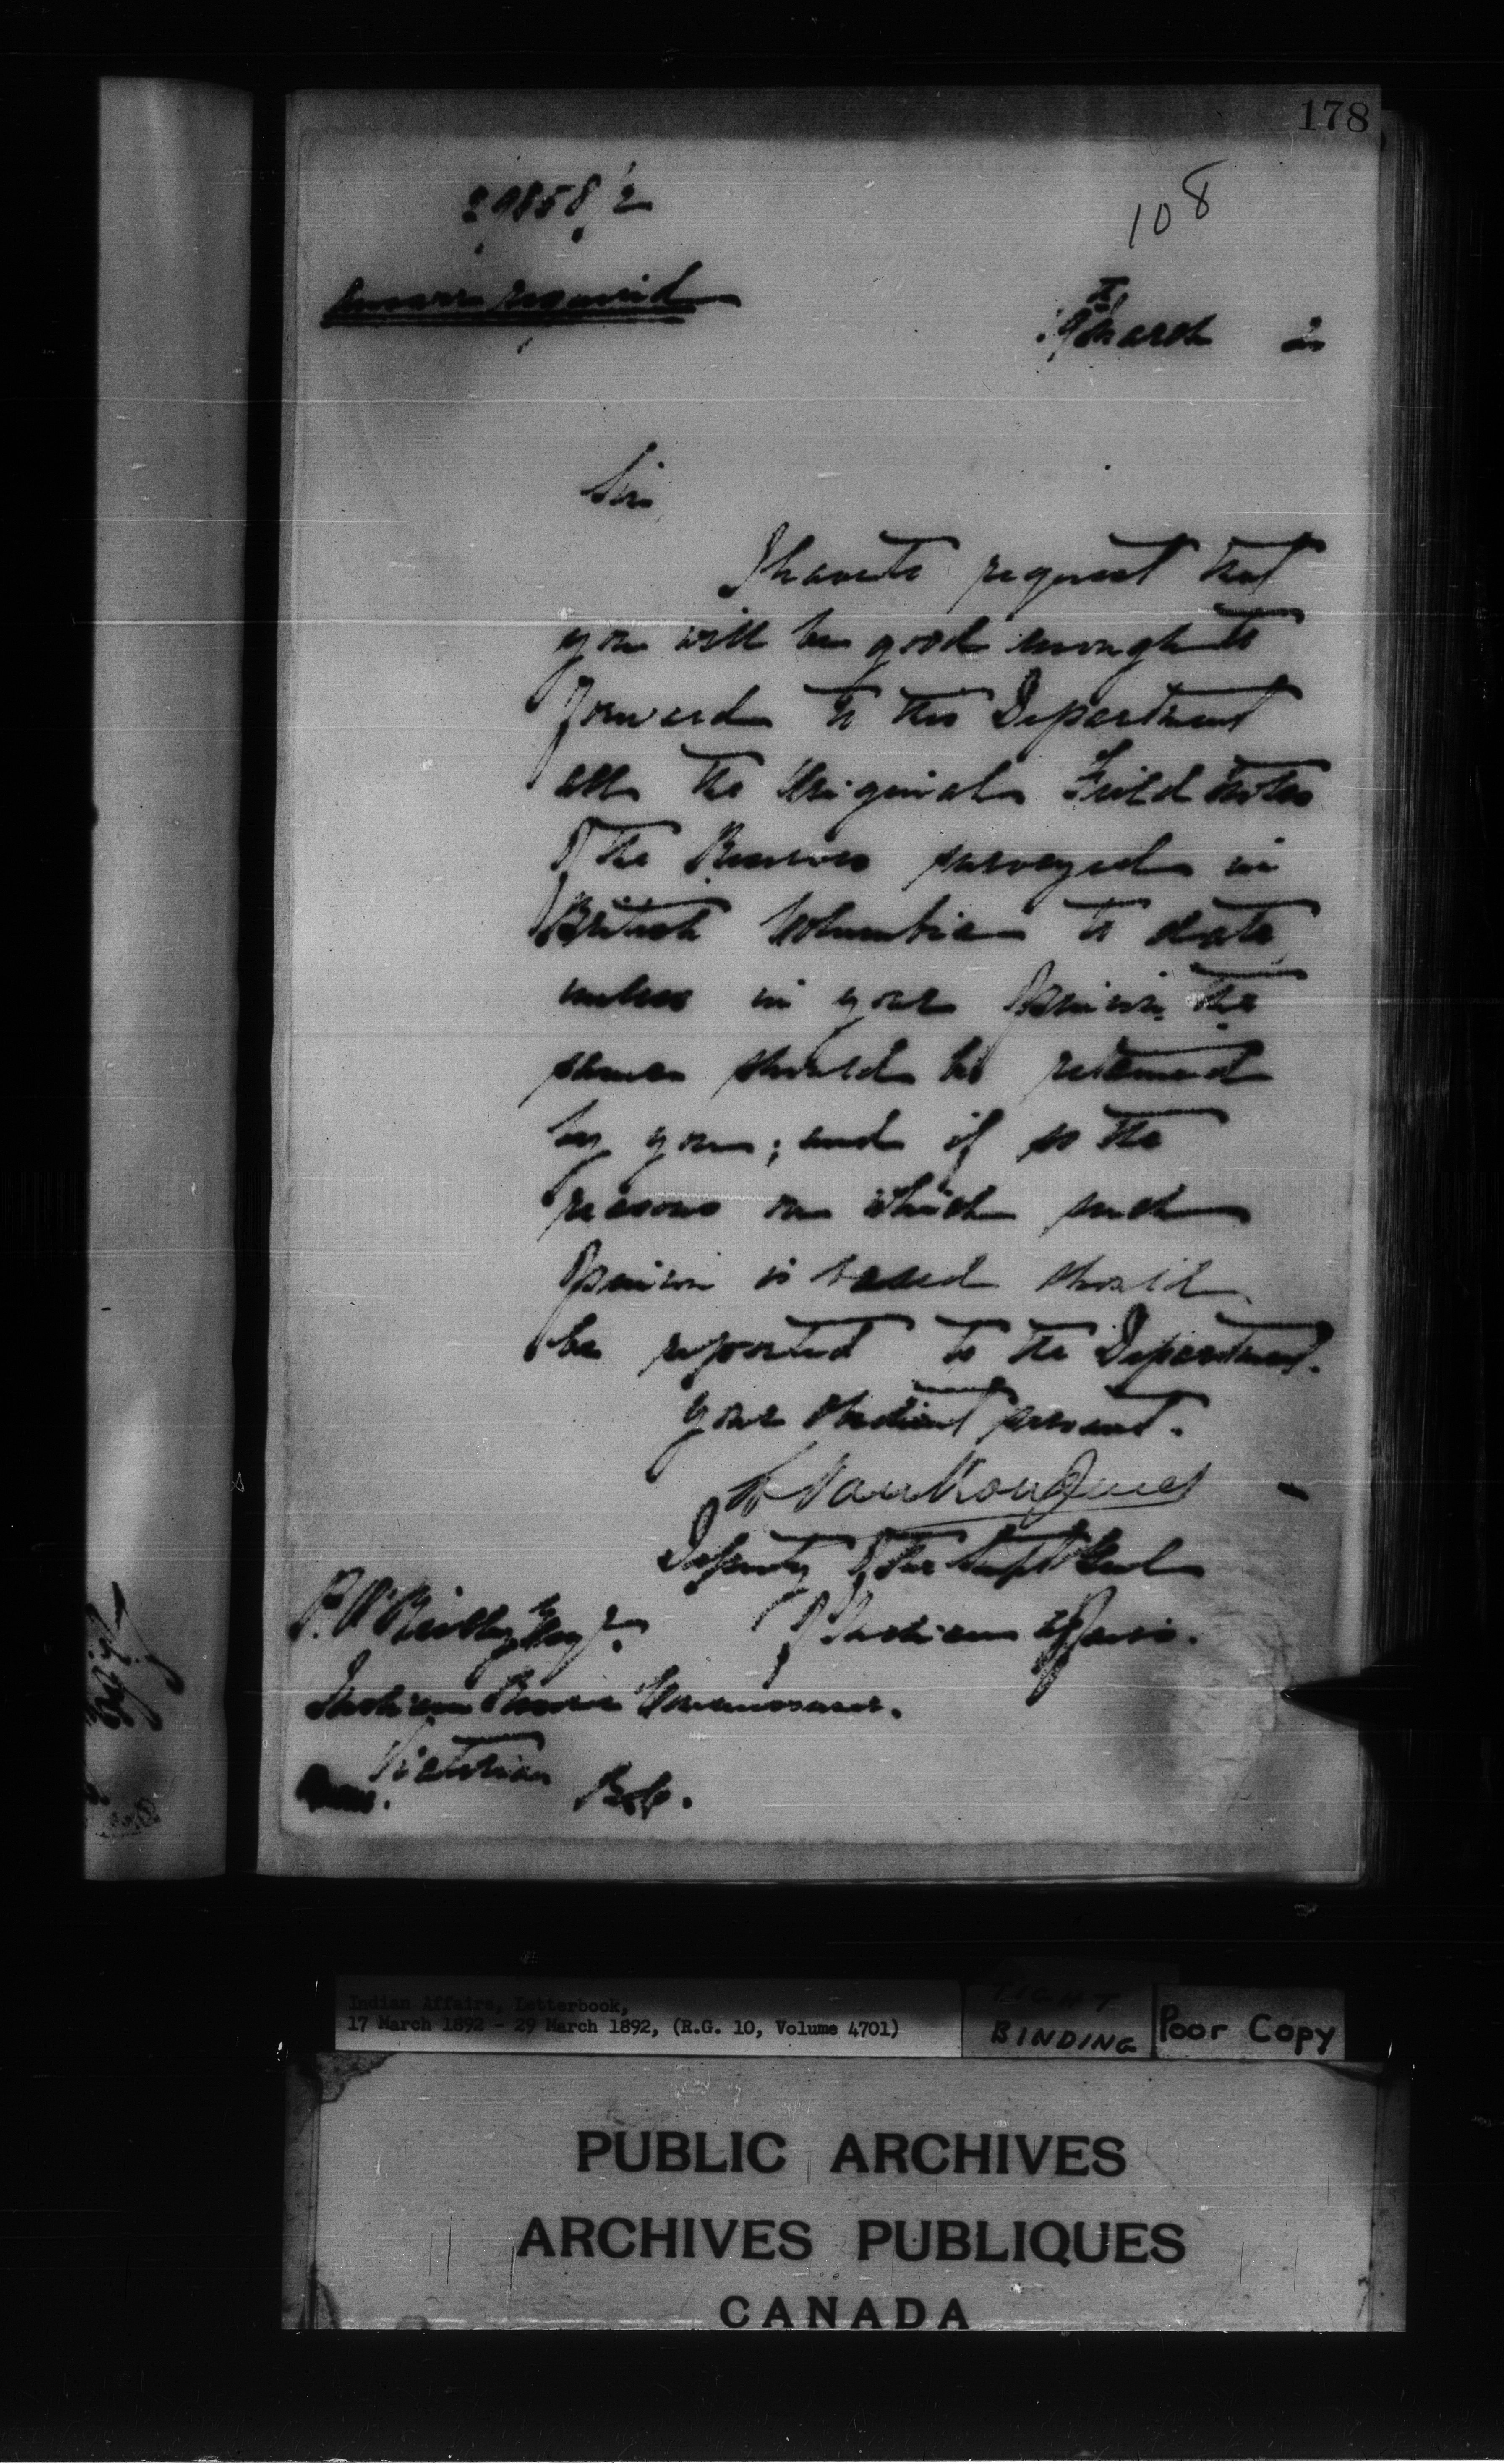 178
29858/2
108
Answer required
19th March 2
Sir
I have to request that
you will be good enough to
forward to the Department
all the Original Field Notes
of the Reserves surveyed in
British Columbia to date
unless in your opinion the
same should be retained
by you; and if so the
reasons on which such
opinion is based should
be reported to the Department.
Your obedient servant.
L VanKoughnet
Deputy of the Supt Genl
of Indian Affairs.
P. O'Reilly Esqr.
Indian Reserve Commissioner.
Victoria
B.C.
Indian Affairs, Letterbook,
17 March 1892 - 29 March 1892, (R.G. 10, Volume 4701)
TIGHT
BINDING
Poor Copy
PUBLIC ARCHIVES
ARCHIVES PUBLIQUES
CANADA